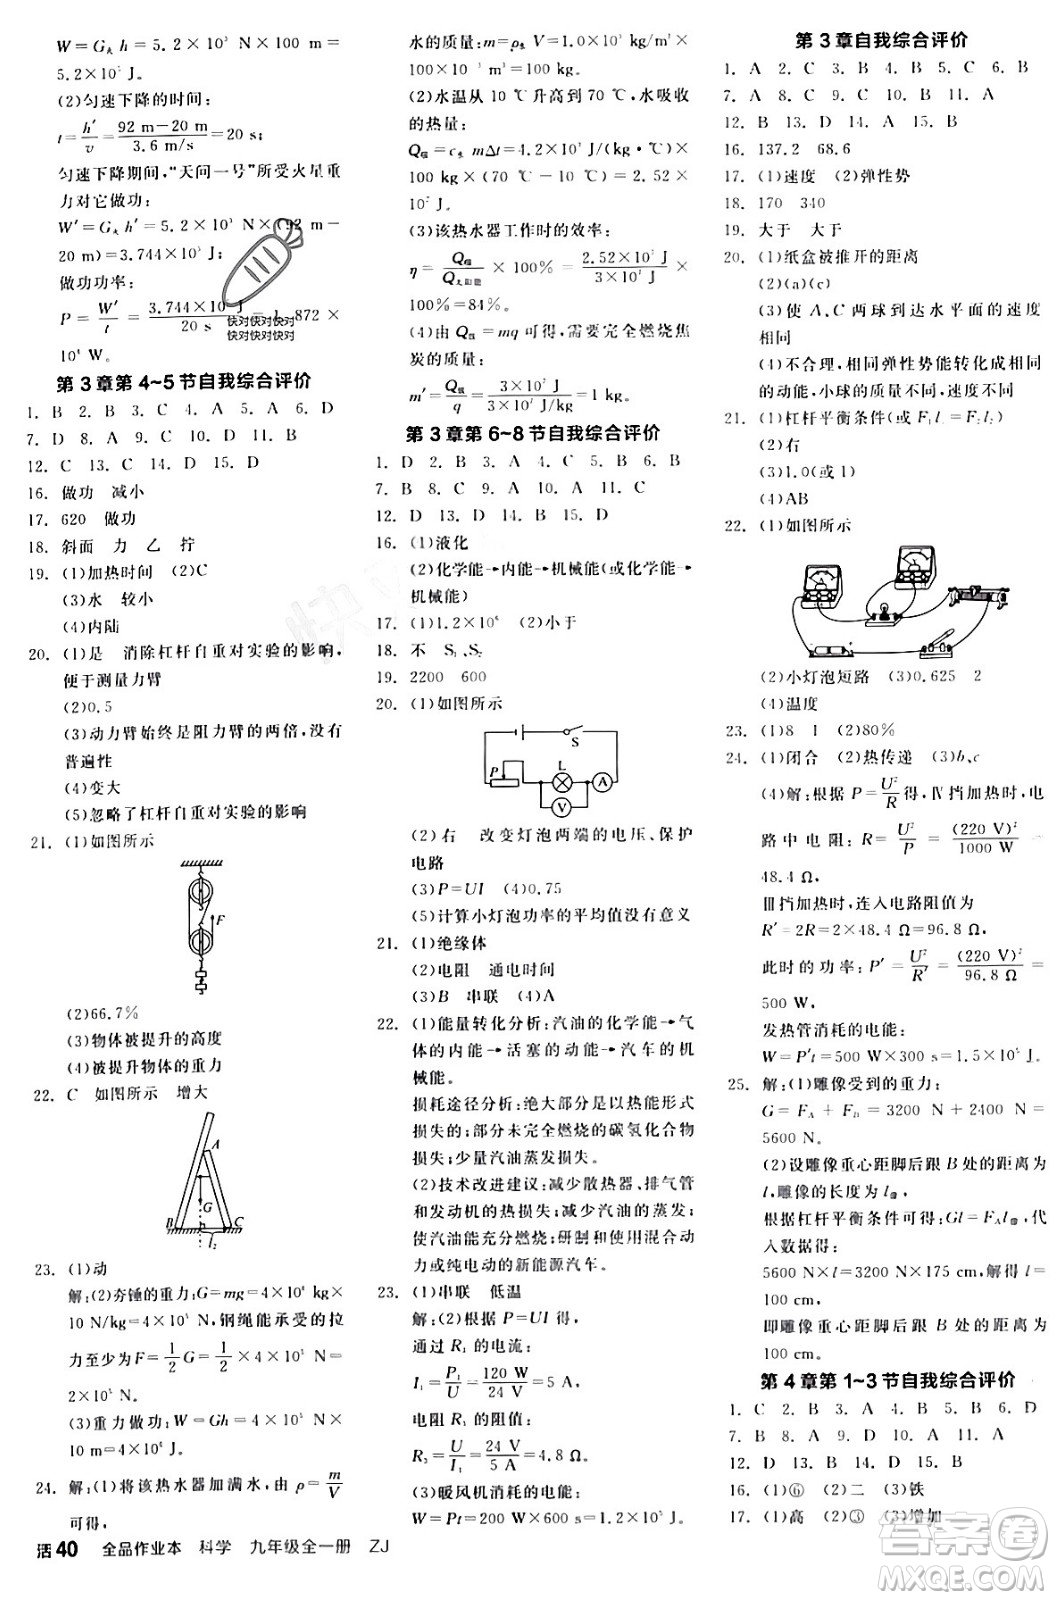 W=G火h=5.2×10³ N×100 m=
5.2×10⁵ J。
(2)匀速下降的时间:
t=h′/v=(92 m-20 m)/(3.6 m/s)=20 s;
匀速下降期间,“天问一号”所受火星重
力对它做功:
W′=G火h′=5.2×10³ N×(92 m-
20 m)=3.744×10⁵ J
做功功率:
P=W′/t=(3.744×10⁵ J)/(20 s)=1.872×
10⁴ W。
第3章第4~5节自我综合评价
1. B 2. B 3. C 4. A 5. A 6. D
7. D 8. D 9. B 10. B 11. B
12. C 13. C 14. D 15. D
16. 做功 减小
17. 620 做功
18. 斜面 力 乙 拧
19. (1)加热时间 (2)C
(3)水 较小
(4)内陆
20. (1)是 消除杠杆自重对实验的影响,
便于测量力臂
(2)0.5
(3)动力臂始终是阻力臂的两倍,没有
普遍性
(4)变大
(5)忽略了杠杆自重对实验的影响
21. (1)如图所示
F
(2)66.7%
(3)物体被提升的高度
(4)被提升物体的重力
22. C 如图所示 增大
A
G
B
C
l₂
23. (1)动
解:(2)夯锤的重力:G=mg=4×10⁴ kg×
10 N/kg=4×10⁵ N,钢绳能承受的拉
力至少为F=1/2G=1/2×4×10⁵ N=
2×10⁵ N。
(3)重力做功:W=Gh=4×10⁵ N×
10 m=4×10⁶ J。
24. 解:(1)将该热水器加满水,由ρ=m/V
可得,
水的质量:m=ρ水V=1.0×10³ kg/m³×
100×10⁻³ m³=100 kg。
(2)水温从10 ℃升高到70 ℃,水吸收
的热量:
Q吸=c水mΔt=4.2×10³ J/(kg·℃)×
100 kg×(70 ℃-10 ℃)=2.52×
10⁷ J。
(3)该热水器工作时的效率:
η=Q吸/Q太阳能×100%=(2.52×10⁷ J)/(3×10⁷ J)×
100%=84%。
(4)由Q放=mq可得,需要完全燃烧焦
炭的质量:
m′=Q放/q=(3×10⁷ J)/(3×10⁷ J/kg)=1 kg。
第3章第6~8节自我综合评价
1. D 2. B 3. A 4. C 5. C 6. A
7. B 8. C 9. A 10. A 11. B
12. D 13. D 14. D 15. D
16. (1)液化
(2)化学能→内能→机械能(或化学能→
机械能)
17. (1)1.2×10⁶ (2)小于
18. 不 S₁、S₂
19. 2200 600
20. (1)如图所示
S
P
L
A
V
(2)右 改变灯泡两端的电压、保护
电路
(3)P=UI (4)0.75
(5)计算小灯泡功率的平均值没有意义
21. (1)绝缘体
(2)电阻 通电时间
(3)B 串联 (4)A
22. (1)能量转化分析:汽油的化学能→气
体的内能→活塞的动能→汽车的机
械能。
损耗途径分析:绝大部分是以热能形式
损失的;部分未完全燃烧的碳氢化合物
损失;少量汽油蒸发损失。
(2)技术改进建议:减少散热器、排气管
和发动机的热损失;减少汽油的蒸发;
使汽油能充分燃烧;研制和使用混合动
力或纯电动的新能源汽车。
23. (1)串联 低温
解:(2)根据P=UI得,
通过R₁的电流:
I₁=P₁/U=120 W/24 V=5 A,
电阻R₁的阻值:
R₁=U/I₁=24 V/5 A=4.8 Ω。
(3)暖风机消耗的电能:
第3章自我综合评价
1. A 2. C 3. B 4. C 5. C 6. B
7. A 8. C 9. C 10. B 11. A
12. B 13. D 14. A 15. B
16. 137.2 68.6
17. (1)速度 (2)弹性势
18. 170 340
19. 大于 大于
20. (1)纸盒被推开的距离
(2)(a)(c)
(3)使A、C两球到达水平面的速度
相同
(4)不合理,相同弹性势能转化成相同
的动能,小球的质量不同,速度不同
21. (1)杠杆平衡条件(或F₁l₁=F₂l₂)
(2)右
(3)1.0(或1)
(4)AB
22. (1)如图所示
(2)小灯泡短路 (3)0.625 2
(4)温度
23. (1)8 1 (2)80%
24. (1)闭合 (2)热传递 (3)b、c
(4)解:根据P=U²/R得,Ⅳ挡加热时,电
路中电阻:R=U²/P=(220 V)²/1000 W=
48.4 Ω
Ⅲ挡加热时,连入电路阻值为
R′=2R=2×48.4 Ω=96.8 Ω,
此时的功率:P′=U²/R′=(220 V)²/96.8 Ω=
500 W,
发热管消耗的电能:
W=P′t=500 W×300 s=1.5×10⁵ J。
25. 解:(1)雕像受到的重力:
G=F_A+F_B=3200 N+2400 N=
5600 N。
(2)设雕像重心距脚后跟B处的距离为
l,雕像的长度为l雕,
根据杠杆平衡条件可得:Gl=F_Al雕,代
入数据得:
5600 N×l=3200 N×175 cm,解得:l=
100 cm,
即雕像重心距脚后跟B处的距离为
100 cm。
第4章第1~3节自我综合评价
1. C 2. B 3. A 4. B 5. B 6. D
7. B 8. A 9. D 10. A 11. B
12. D 13. D 14. B 15. B
16. (1)⑥ (2)二 (3)铁
17. (1)高 (2)③ (3)增加
快对快对快对
快对快对
活40 全品作业本 科学 九年级全一册 ZJ
答案圈
MXQE.COM